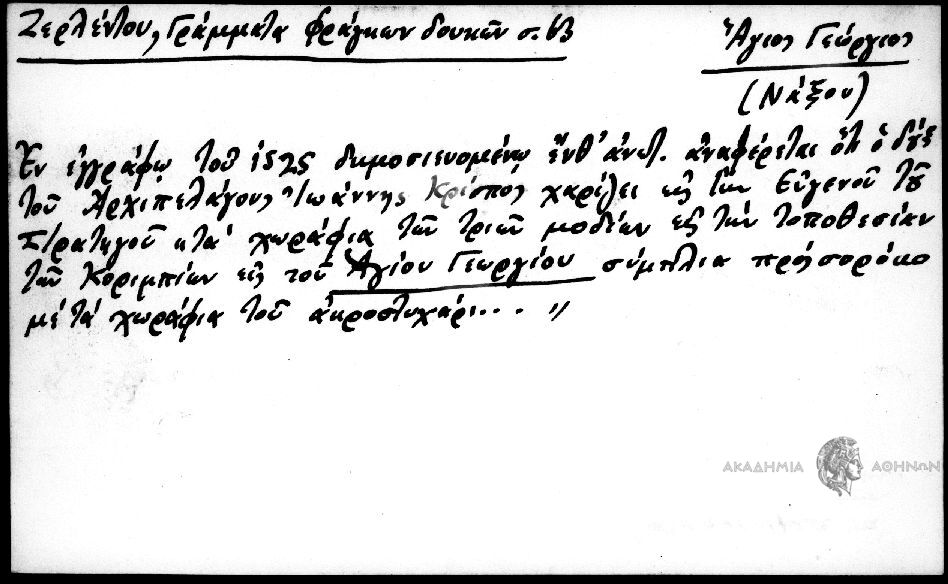 Ζερλέντου, Γράμματα φράγκων δουκῶν σ. 63
Ἅγιος Γεώργιος
(Νάξου)
Ἐν ἐγγράφῳ τοῦ 1525 δημοσιευομένῳ ἔνθ' ἀνωτ. ἀναφέρεται ὅτι ὁ δούξ
τοῦ Ἀρχιπελάγους Ἰωάννης Κρίσπος χαρίζει εἰς τὸν Εὐγενοῦ τοῦ
Στρατηγοῦ "τὰ χωράφια τῶν τριῶν μοδίων εἰς τὴν τοποθεσίαν
τῶν Κοριμπίων εἰς τοῦ Ἁγίου Γεωργίου σύμπλια
με τὰ χωράφια τοῦ ἀκροστυχάρι... "
ΑΚΑΔΗΜΙΑ ΑΘΗΝΩΝ